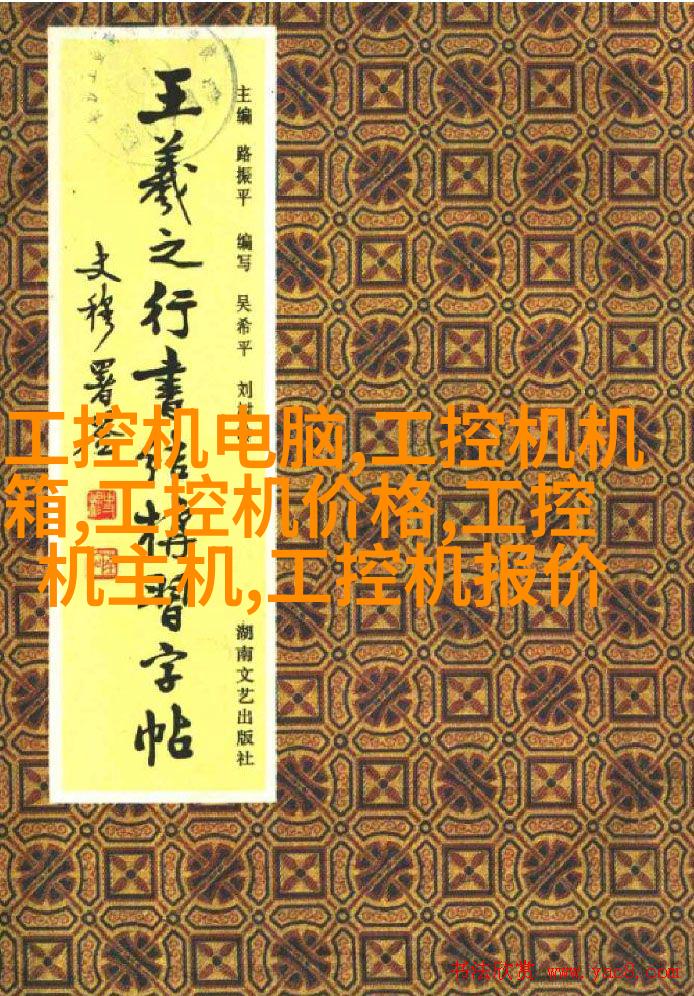 主编 路振平 编写 吴希平 刘
湖南文艺出版社
王羲之行書结構習字帖
史穆署签
工控机电脑,工控机机
箱,工控机价格,工控
机主机,工控机报价
书法欣赏 www.yac8.com